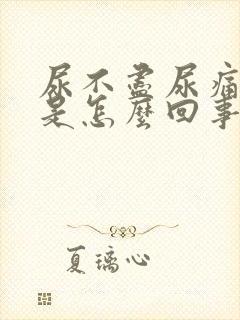 尿不盡尿痛
是怎麼回事
夏璃心